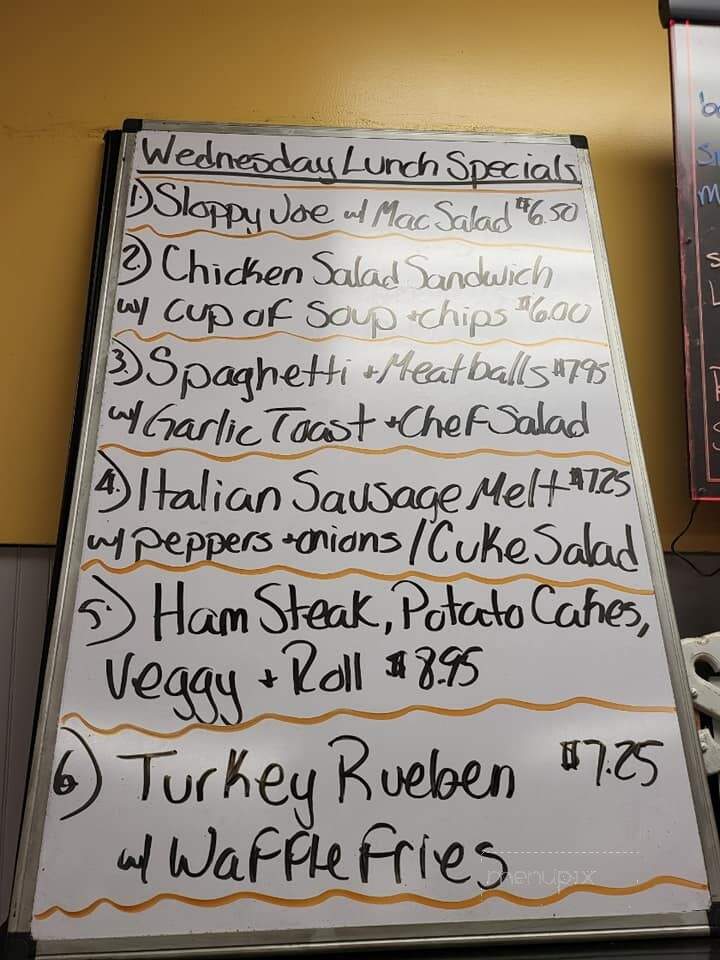 Wednesday Lunch Specials
1.) Sloppy Joe w/ Mac Salad $6.50
2.) Chicken Salad Sandwich
w/ cup of Soup + chips $6.00
3.) Spaghetti + Meatballs $7.95
w/ Garlic Toast + Chef Salad
4.) Italian Sausage Melt $7.25
w/ peppers + onions / Cuke Salad
5.) Ham Steak, Potato Cakes,
Veggy + Roll $8.95
6.) Turkey Rueben $7.25
w/ Waffle Fries
menupix